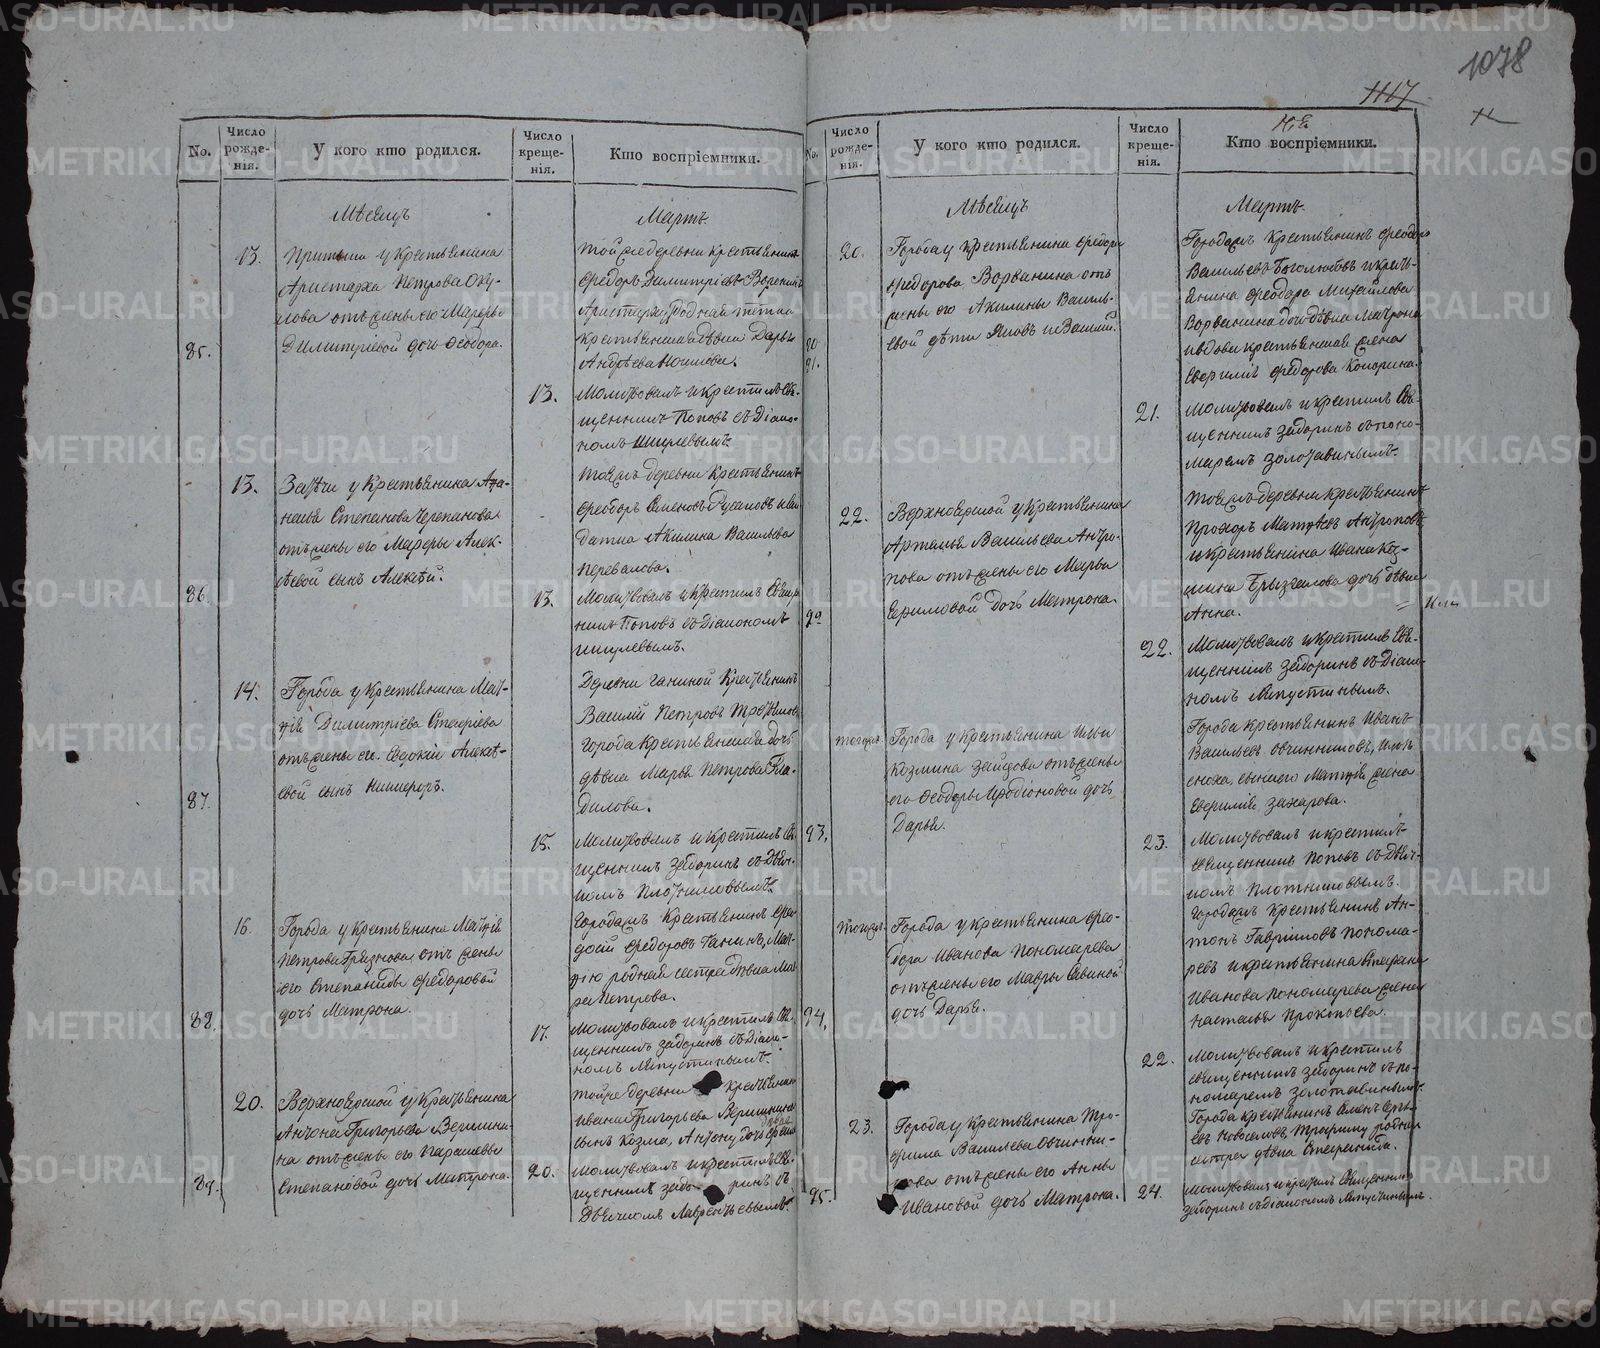 1078
1117
No.
Число рожде-нія.
У кого кто родился.
Число креще-нія.
Кто воспріемники.
Мѣсяцъ
Мартъ
13.
у Крестьянина
Аристарха Петрова
отъ жены его Марѳы
Димитріевой дочь Ѳеодора.
85.
той же деревни Крестьянинъ
Ѳедоръ Димитріевъ
родная тетка
Крестьянская дѣвка Дарья
Андрѣева
13.
Молитвовалъ и крестилъ Свя-
щенникъ Поповъ съ Діако-
номъ
13.
у Крестьянина Аѳа-
насья Степанова Черепанова
отъ жены его Марѳы Алек-
ѣевой сынъ Алексѣй.
86.
деревни Крестьянинъ
Ѳеодоръ Семеновъ Русаковъ
Акилина Васильева
Перевалова.
13.
Молитвовалъ и крестилъ Священ
никъ Поповъ съ Діакономъ
14.
Города у Крестьянина Мат-
ѳія Димитріева
отъ жены его Евдокіи Алексѣ-
евой сынъ Никифоръ.
87.
Деревни Ганиной Крестьянинъ
Василій Петровъ
города Крестьянская дочь
дѣвка Марья Петрова
дилова.
15.
Молитвовалъ и крестилъ Свя
щенникъ Заборинъ съ Дьяч-
комъ Плотниковымъ.
16.
Города у Крестьянина Матѳія
Петрова Грязнова отъ жены
его Степаниды Ѳедоровой
дочь Матрона.
88.
Городской Крестьянинъ
Ѳедоровъ Ганинъ,
родная сестра дѣвка
Петрова.
17.
Молитвовалъ и крестилъ Свя-
щенникъ Заборинъ съ Діако-
номъ Лапустинымъ.
20.
Верхноярской у Крестьянина
Антона Григорьева Вершини-
на отъ жены его Параскевы
Степановой дочь Матрона.
89.
той же деревни Крестьянина
Ивана Григорьева Вершинина
сынъ Козма, Антону дочь
20.
Молитвовалъ и крестилъ Свя-
щенникъ Заборинъ съ
Дьячкомъ Лаврентьевымъ.
No.
Число рожде-нія.
У кого кто родился.
Число креще-нія.
Кто воспріемники.
Мѣсяцъ
Мартъ
20.
Города у Крестьянина Ѳедора
Ѳедорова Ворванина отъ
жены его Акилины Василь-
евой дѣти Яковъ и Василій.
90
91.
Городской Крестьянинъ Ѳеодоръ
Васильевъ Боголюбовъ и кресть-
янина Ѳеодора Михайлова
Ворванина дочь дѣвка Матрона
и вдова крестьянская жена
Евфимія Ѳедорова
21.
Молитвовалъ и крестилъ Свя-
щенникъ Заборинъ съ поно-
маремъ Золотавинымъ.
22.
Верхноярской у Крестьянина
Артемья Васильева Антро-
пова отъ жены его Марѳы
Ефимовой дочь Матрона.
92
деревни Крестьянинъ
Прохоръ Матвѣевъ Антроповъ
и крестьянина Ивана Коз-
мина Брызгалова дочь дѣвка
Анна.
22.
Молитвовалъ и крестилъ Свя-
щенникъ Заборинъ съ Діако-
номъ Лапустинымъ.
тогожъ
Города у Крестьянина Ильи
Козмина Зайцова отъ жены
его Ѳеодоры Иродіоновой дочь
Дарья.
93.
Города Крестьянинъ Иванъ
Васильевъ Овчинниковъ,
Матѳія жена
Евфимія Захарова.
23.
Молитвовалъ и крестилъ
священникъ Поповъ съ Дьяч-
комъ Плотниковымъ.
тогожъ
Города у Крестьянина Ѳео-
дора Иванова Пономарева
отъ жены его Мавры Савиной
дочь Дарья.
94.
Городской Крестьянинъ Ан-
тонъ Гавриловъ Понома-
ревъ и крестьянина Стефана
Иванова Пономарева жена
Наталья Прокопьева.
22.
Молитвовалъ и крестилъ
священникъ Заборинъ съ по-
номаремъ Золотавинымъ.
23.
Города у Крестьянина Тро-
фима Васильева Овчинни-
кова отъ жены его Анны
Ивановой дочь Матрона.
95.
Города крестьянинъ
Новоселовъ, Трофиму родная
сестра дѣвка Стефанида.
24.
Молитвовалъ и крестилъ Священникъ
Заборинъ съ Діакономъ Лапустинымъ.
METRIKI.GASO-URAL.RU